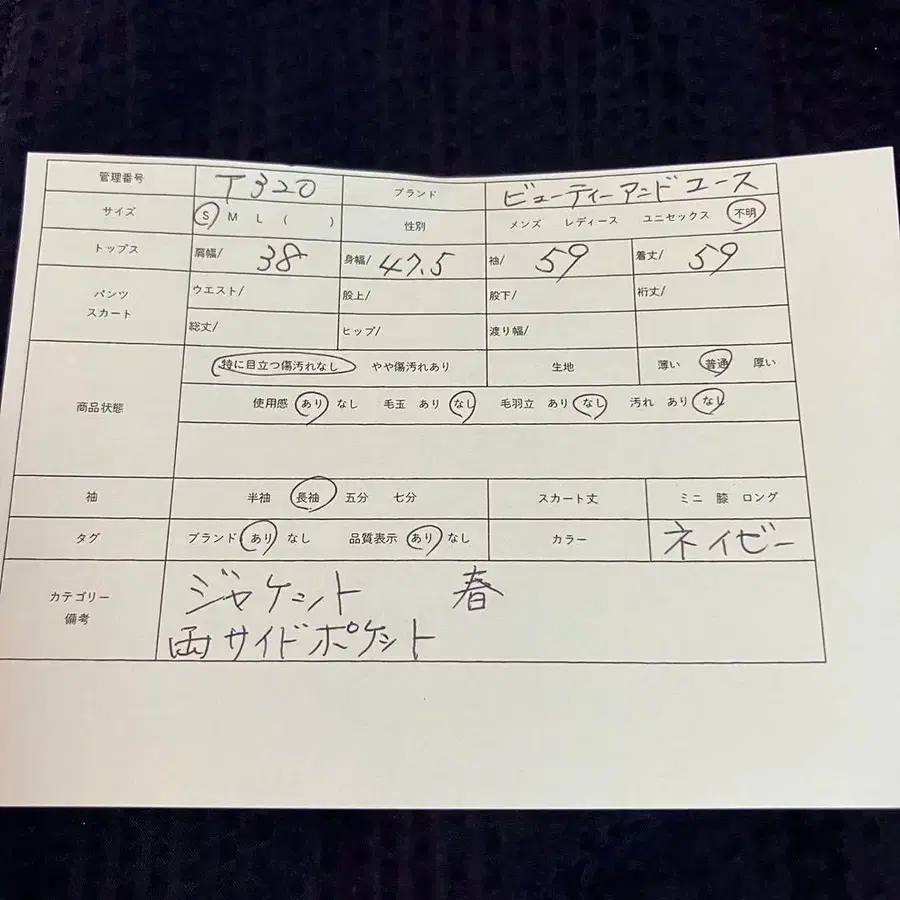 管理番号 T320 ブランド ビューティーアンドユース
サイズ S M L ( ) 性別 メンズ レディース ユニセックス 不明
トップス 肩幅/ 38 身幅/ 47.5 袖/ 59 着丈/ 59
パンツ スカート ウエスト/ 股上/ 股下/ 裄丈/
総丈/ ヒップ/ 渡り幅/
商品状態 特に目立つ傷汚れなし やや傷汚れあり 生地 薄い 普通 厚い
使用感 あり なし 毛玉 あり なし 毛羽立 あり なし 汚れ あり なし
袖 半袖 長袖 五分 七分 スカート丈 ミニ 膝 ロング
タグ ブランド あり なし 品質表示 あり なし カラー ネイビー
カテゴリー 備考 ジャケット 春
両サイドポケット